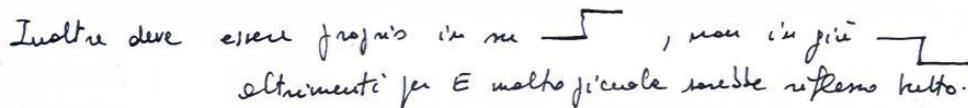 Inoltre deve essere proprio in su , non in giù
altrimenti per E molto piccole sarebbe riflesso tutto.